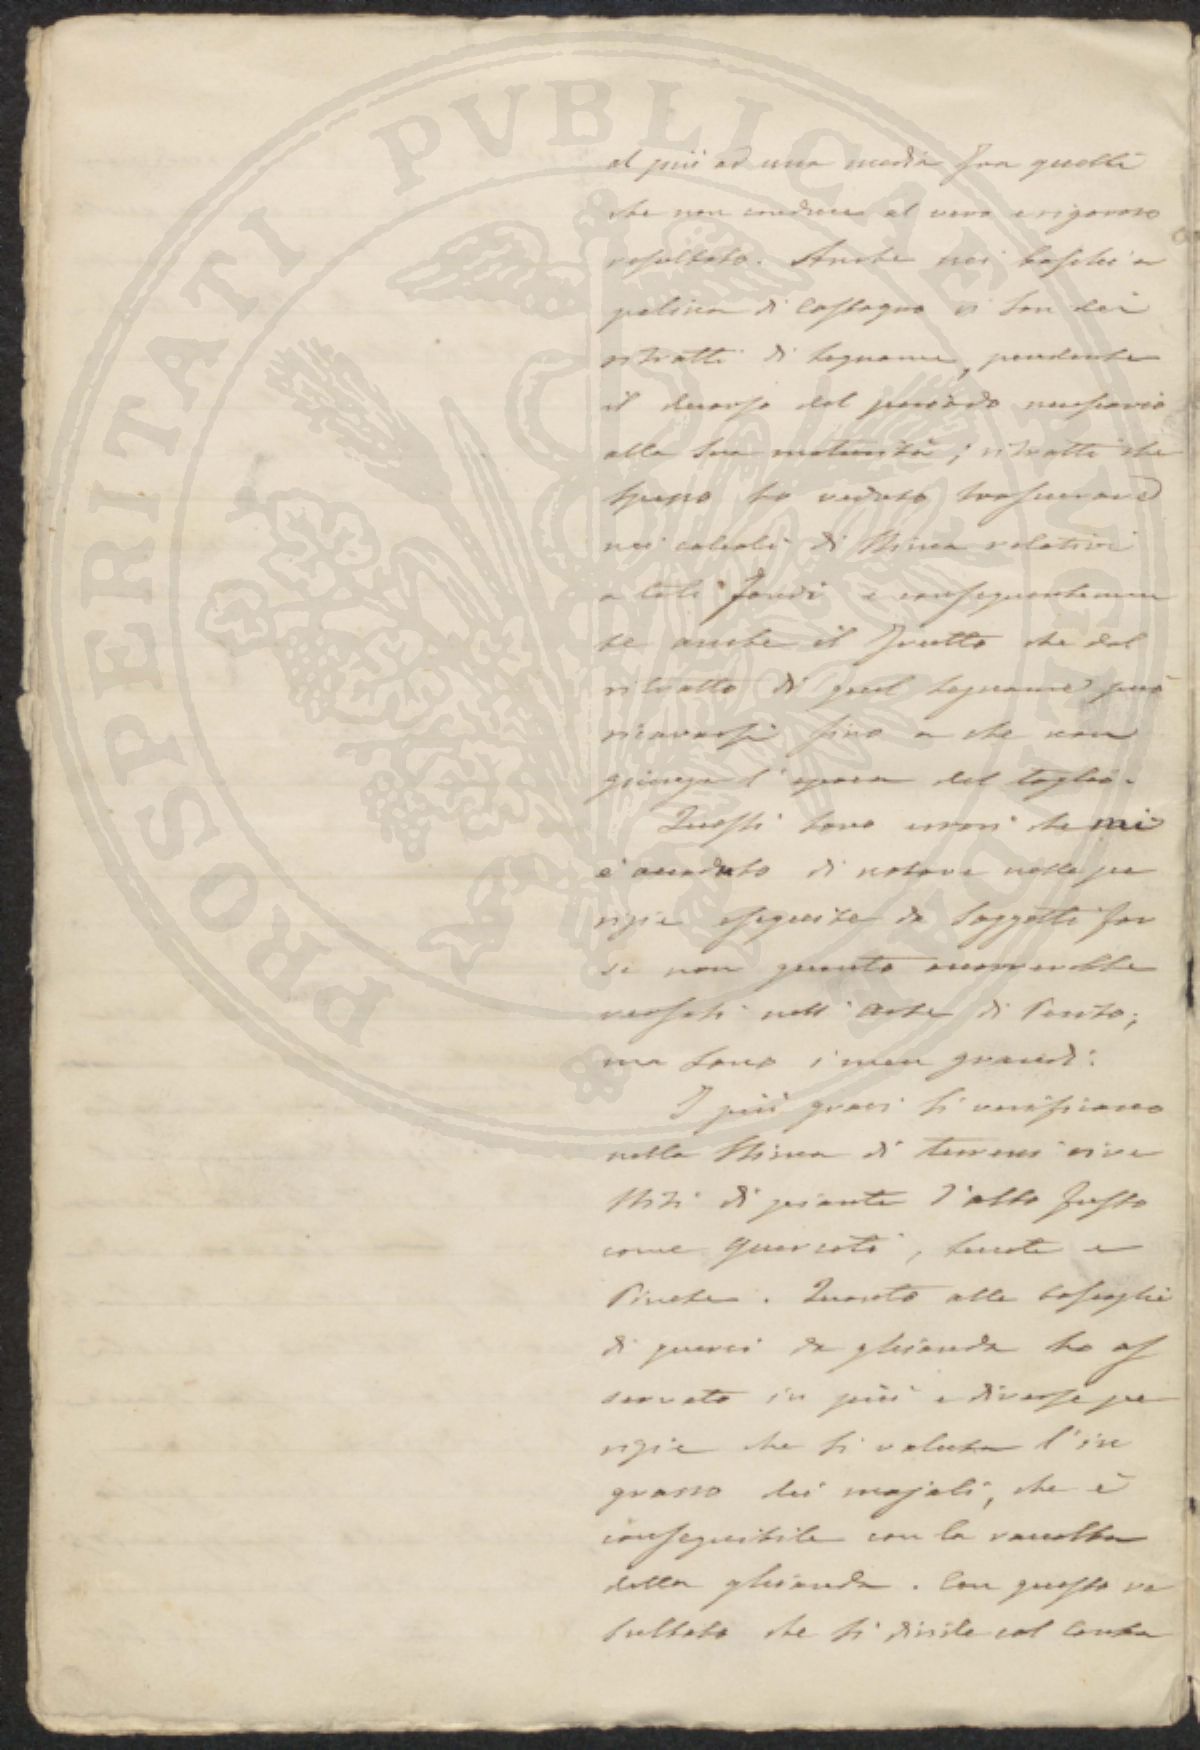 PROSPERITATI PVBLICAE AVGENDAE
al più ad una media fra quelli
che non conduce al vero e rigoroso
resultato. Anche nei boschi a
palina di Castagno vi son dei
ritratti di legname, pendente
il decorso del periodo necessario
alla sua maturità; ritratti che
spesso ho veduto trascurare
nei calcoli di Stima relativi
a tali fondi e conseguentemen
te anche il frutto che dal
ritratto di quel legname può
ricavarsi fino a che non
giunga l'epoca del taglio.
Questi sono errori che mi
è accaduto di notare nelle pe
rizie eseguite da Soggetti for
se non quanto occorrerebbe
versati nell'Arte di Perito;
ma sono i men grandi.
I più gravi si verificano
nella Stima di terreni rive
stiti di piante d'alto fusto
come Querceti, Leccete e
Pinete. Quanto alle boscaglie
di querci da ghianda ho os
servato in più e diverse pe
rizie che si valuta l'in
grasso dei majali, che è
conseguibile con la raccolta
della ghianda. Con questo re
sultato che si divide col Conta